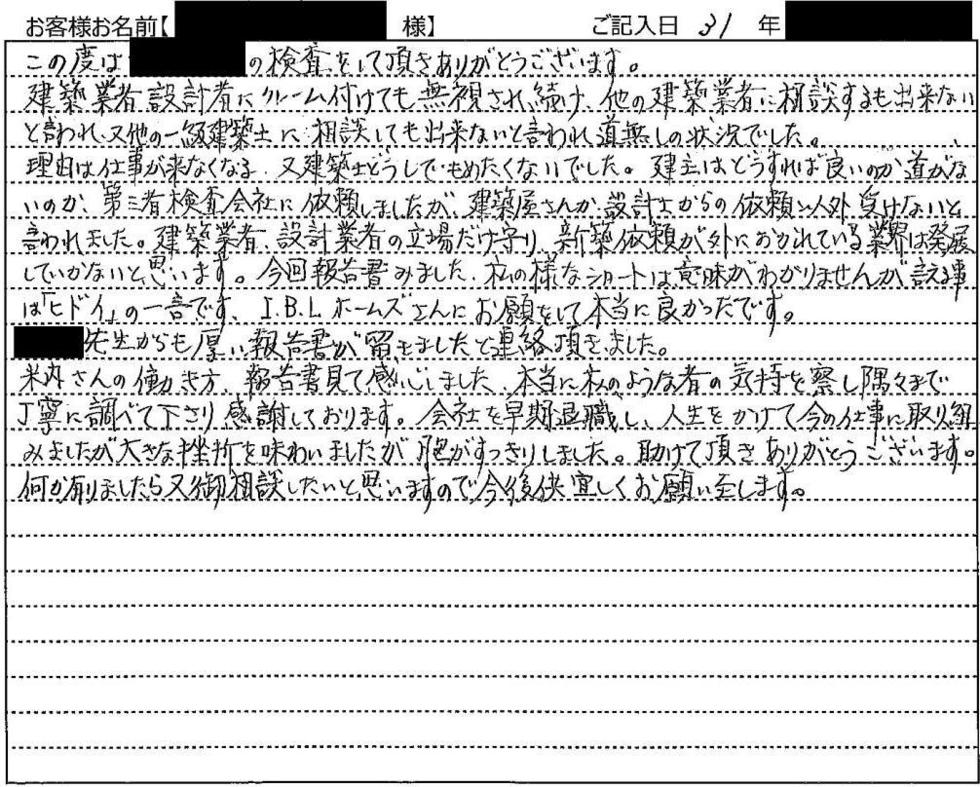 お客様お名前【 様】 ご記入日 31 年
この度は の検査をして頂きありがとうございます。
建築業者設計者にクレーム付けても無視され続け、他の建築業者に相談するも出来ない
と言われ又他の一級建築士に相談しても出来ないと言われ道無しの状況でした。
理由は仕事が来なくなる、又建築士どうしでもめたくないでした。建主はどうすれば良いのか道がな
いのか、第三者検査会社に依頼しましたが、建築屋さんか設計士からの依頼以外受けないと
言われました。建築業者、設計業者の立場だけ守り、新築依頼が外におかれている業界は発展
していかないと思います。今回報告書みました、私の様なシロートは意味がわかりませんが、言える事
は「ヒドイ」の一言です、I.B.Lホームズさんにお願をして本当に良かったです。
先生からも厚い報告書が届きましたと連絡頂きました。
米内さんの働き方、報告書見て感じました、本当に私のような者の気持を察し隅々まで
丁寧に調べて下さり感謝しております。会社を早期退職し、人生をかけて今の仕事に取り組
みましたが大きな挫折を味わいましたが、胸がすっきりしました。助けて頂きありがとうございます。
何か有りましたら又御相談したいと思いますので今後供宜しくお願い致します。